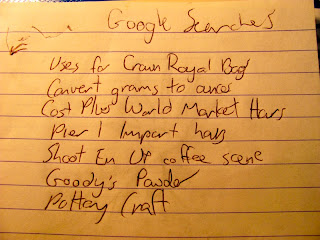 Google Searches
Uses for Crown Royal Bag
Convert grams to ounces
Cost Plus World Market Hours
Pier 1 Import hours
Shoot Em Up coffee scene
Goody's Powder
Pottery Craft